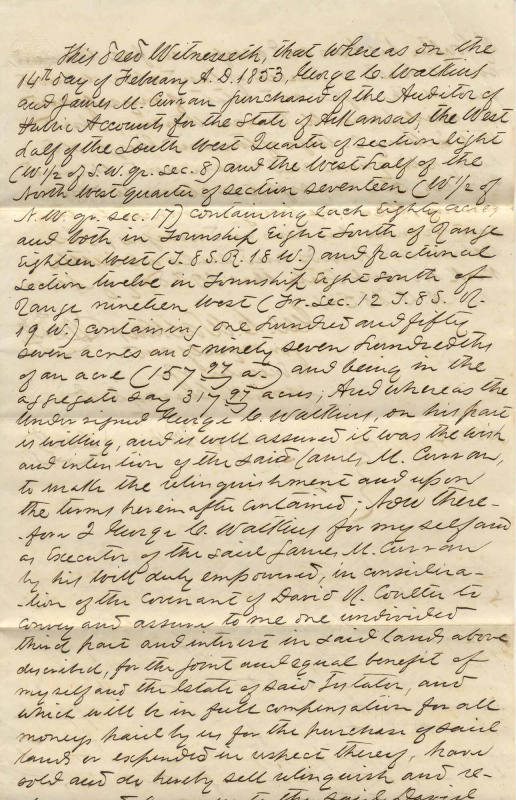 This Deed Witnesseth, that whereas on the
14th day of Febuary A.D. 1853, George C. Watkins
and James M. Curran purchased of the Auditor of
Public Accounts for the State of Arkansas, the West
half of the South West Quarter of section Eight
(W 1/2 of S.W. qr. Sec. 8) and the West half of the
North West quarter of section seventeen (W 1/2 of
N.W. qr. Sec. 17) containing each Eighty acres
and both in Township Eight South of Range
Eighteen West (T. 8 S. R. 18 W.) and fractional
Section twelve in Township Eight South of
Range nineteen West (Fr. Sec. 12 T. 8 S. R.
19 W.) containing one hundred and fifty
seven acres and ninety seven hundredths
of an acre (157 97/ a.) and being in the
aggregate say 317 97/ acres; And whereas the
undersigned George C. Watkins, on his part
is willing, and is well assured it was the wish
and intention of the said James M. Curran,
to make the relinquishment and upon
the terms herein after contained; Now there-
-fore I George C. Watkins for my self and
as Executor of the said James M. Curran
by his will duly empowered, in considera-
-tion of the covenant of David R. Coulter to
convey and assure to me one undivided
third part and interest in said lands above
described, for the joint and equal benefit of
myself and the Estate of said Testator, and
which will be in full compensation for all
moneys paid by us for the purchase of said
lands or expended in respect thereof, have
sold and do hereby sell relinquish and re-
to the said David